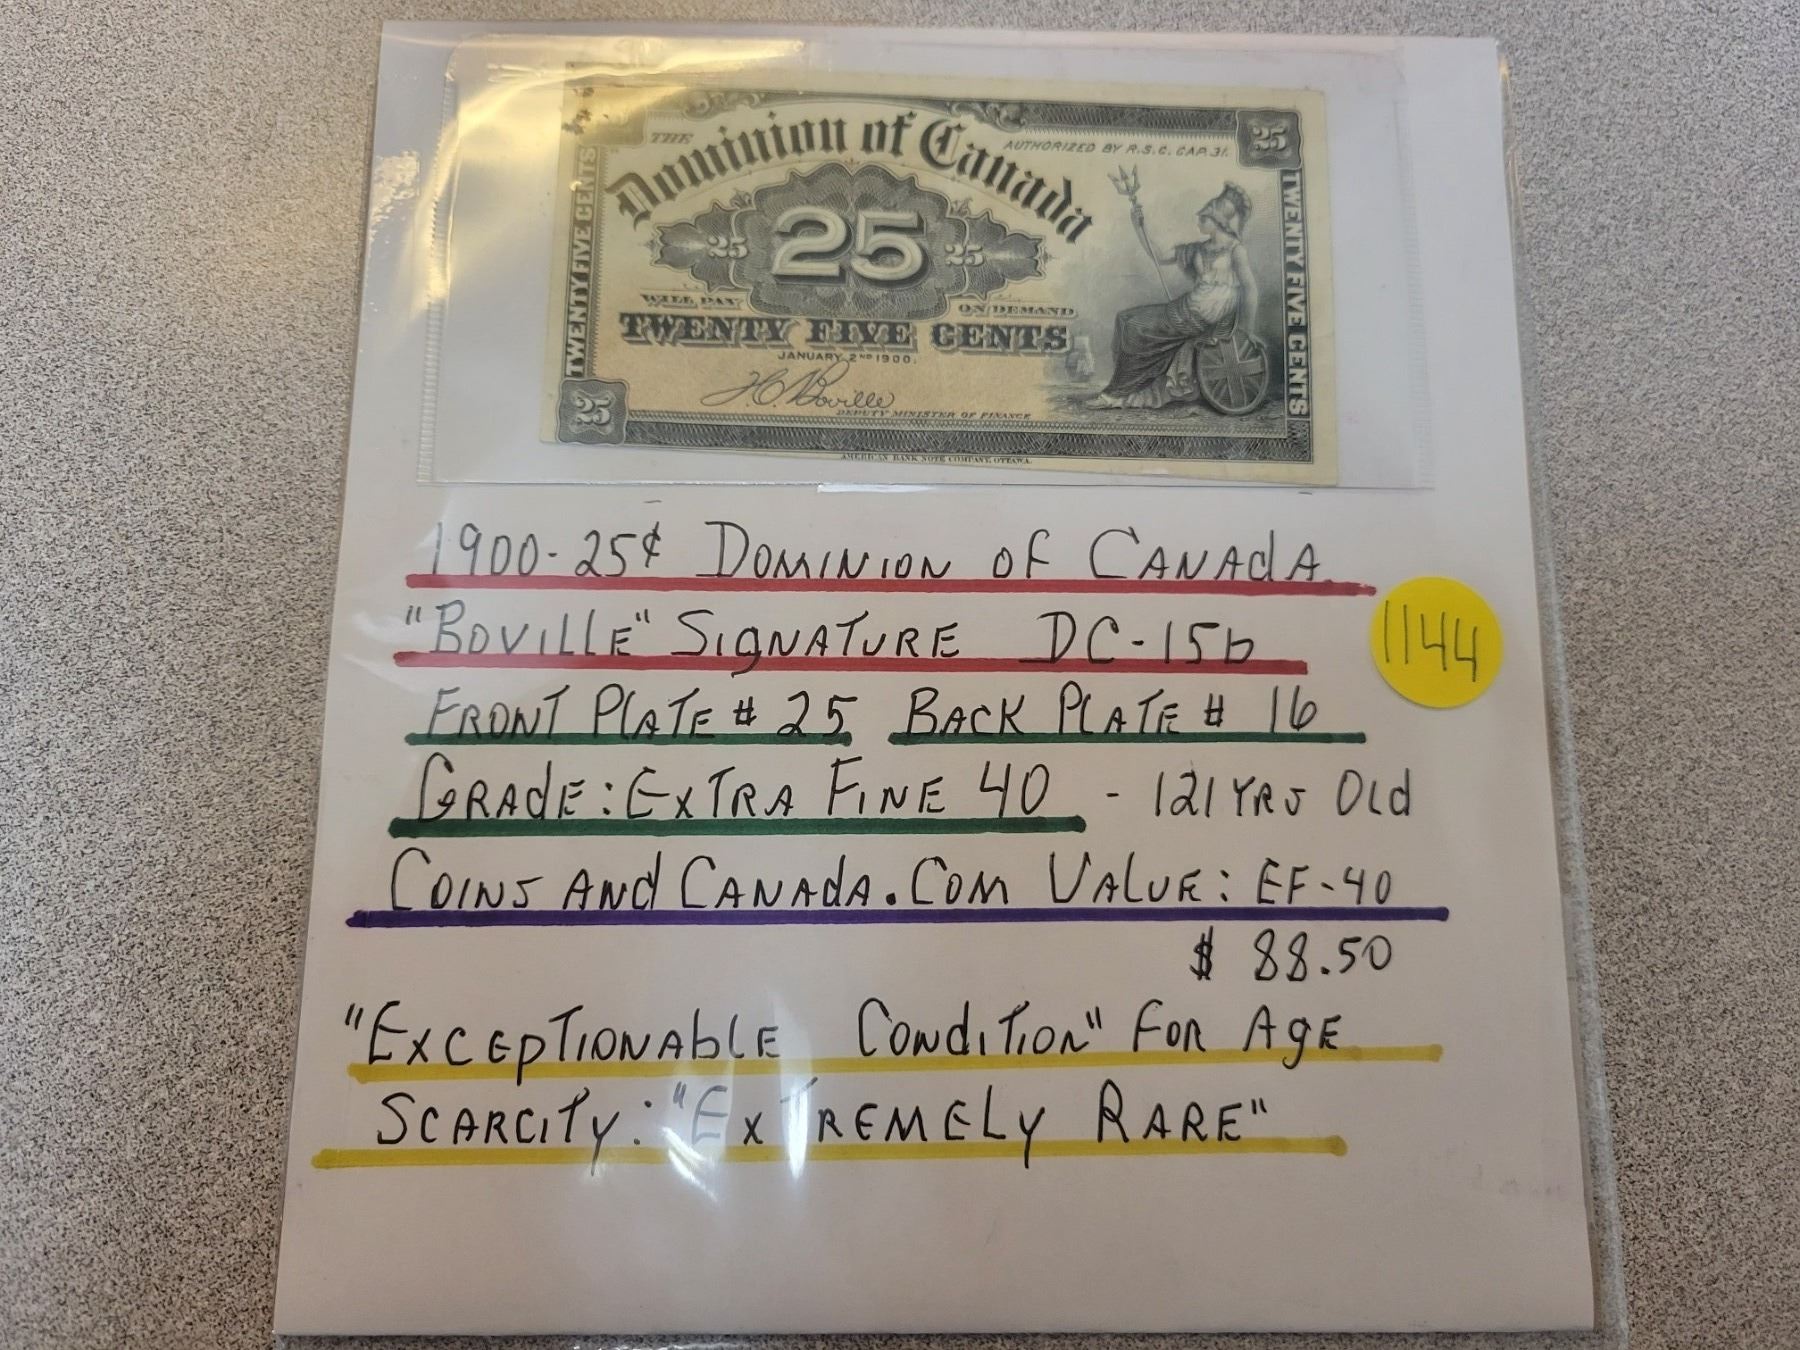 25
THE
Dominion of Canada
AUTHORIZED BY R.S.C. CAP. 31.
TWENTY FIVE CENTS
25 25 25
TWENTY FIVE CENTS
WILL PAY ON DEMAND
TWENTY FIVE CENTS
JANUARY 2ND 1900.
H.C. Boville
DEPUTY MINISTER OF FINANCE
25
AMERICAN BANK NOTE COMPANY, OTTAWA.
1900-25¢ DOMINION OF CANADA
"BOVILLE" SIGNATURE DC-15b
1144
FRONT PLATE # 25 BACK PLATE # 16
GRADE: EXTRA FINE 40 - 121 YRS OLD
COINS AND CANADA.COM VALUE: EF-40
$ 88.50
"EXCEPTIONABLE CONDITION" FOR AGE
SCARCITY: "EXTREMELY RARE"